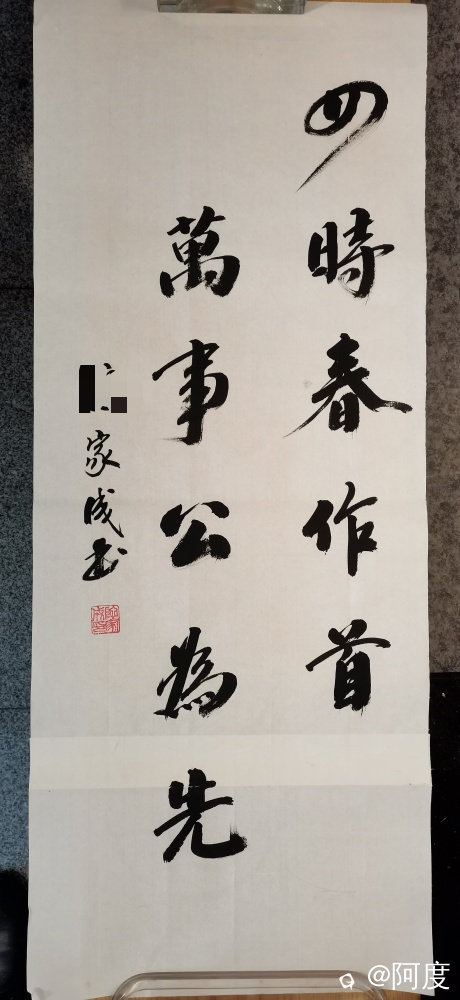 四時春作首
萬事公為先
家成书
@阿度